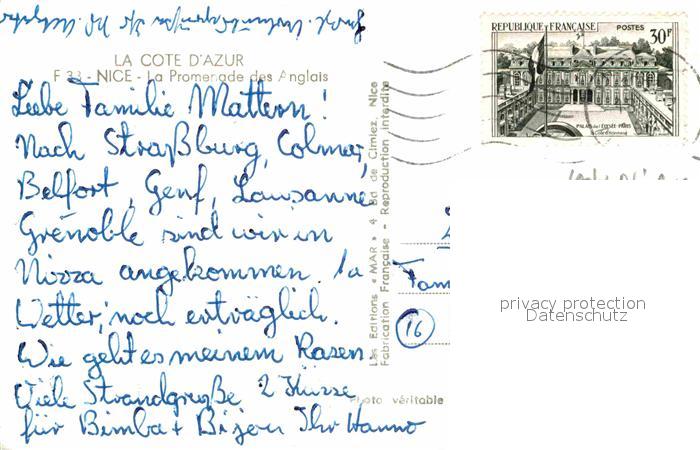 REPUBLIQUE FRANÇAISE POSTES
30F
PALAIS de l'ÉLYSÉE PARIS
LA COTE D'AZUR
F 33 - NICE - La Promenade des Anglais
Liebe Familie Mattern!
Nach Straßburg, Colmar,
Belfort, Genf, Lausanne
Grenoble sind wir in
Nizza angekommen. Ia
Wetter, noch erträglich.
Wie geht es meinem Rasen.
Viele Strandgrüße 2 Küsse
für Bimba + Bijou Ihr Hanno
Les Editions « MAR » 4 Bd de Cimiez, Nice
Fabrication Française - Reproduction interdite
Fam
16
Photo véritable
privacy protection
Datenschutz